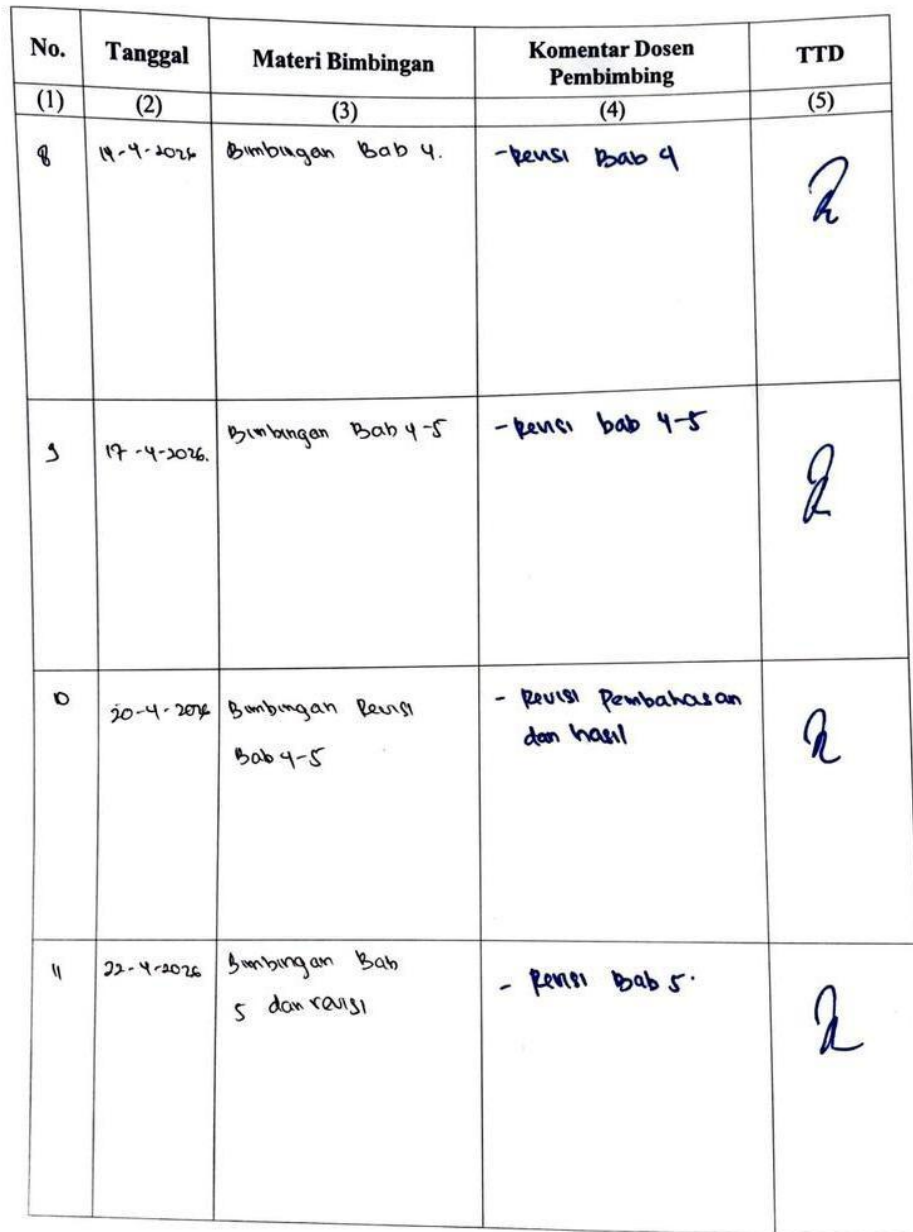 No. Tanggal Materi Bimbingan Komentar Dosen Pembimbing TTD
(1) (2) (3) (4) (5)
8 14-4-2026 Bimbingan Bab 4. - Revisi Bab 4
9 17-4-2026. Bimbingan Bab 4-5 - Revisi bab 4-5
10 20-4-2026 Bimbingan Revisi - Revisi Pembahasan
Bab 4-5 dan hasil
11 22-4-2026 Bimbingan Bab - Revisi Bab 5.
5 dan revisi